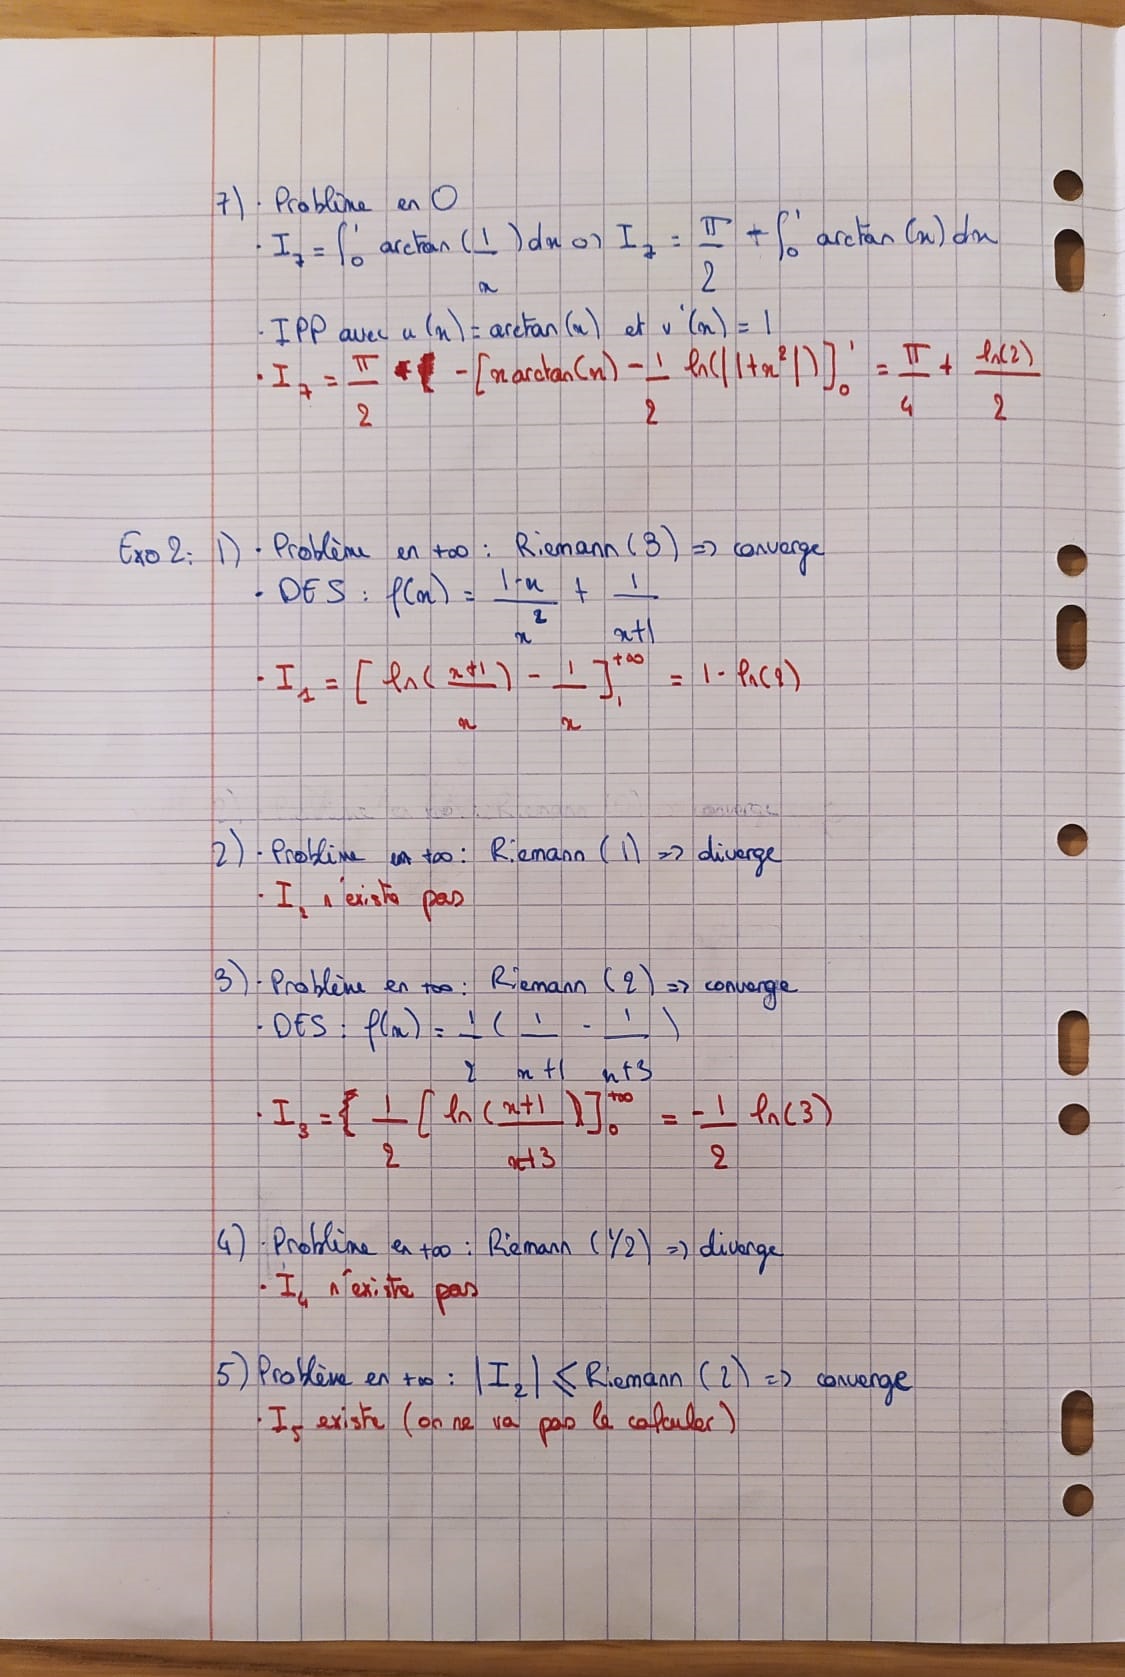 7) · Problème en 0
· I₇ = ∫₀¹ arctan(1/x)dx or I₇ = π/2 + ∫₀¹ arctan(x)dx
· IPP avec u(x) = arctan(x) et v'(x) = 1
· I₇ = π/2 - [x arctan(x) - 1/2 ln(|1+x²|)]₀¹ = π/4 + ln(2)/2
Exo 2: 1) · Problème en +∞ : Riemann (3) => converge
· DES : f(x) = 1-x/x² + 1/x+1
· I₁ = [ln(x+1/x) - 1/x]₁⁺∞ = 1 - ln(2)
2) · Problème en +∞ : Riemann (1) => diverge
· I₂ n'existe pas
3) · Problème en +∞ : Riemann (2) => converge
· DES : f(x) = 1/2 (1/x+1 - 1/x+3)
· I₃ = 1/2 [ln(x+1/x+3)]₀⁺∞ = -1/2 ln(3)
4) · Problème en +∞ : Riemann (1/2) => diverge
· I₄ n'existe pas
5) Problème en +∞ : |I₂| ⩽ Riemann (2) => converge
· I₅ existe (on ne va pas le calculer)